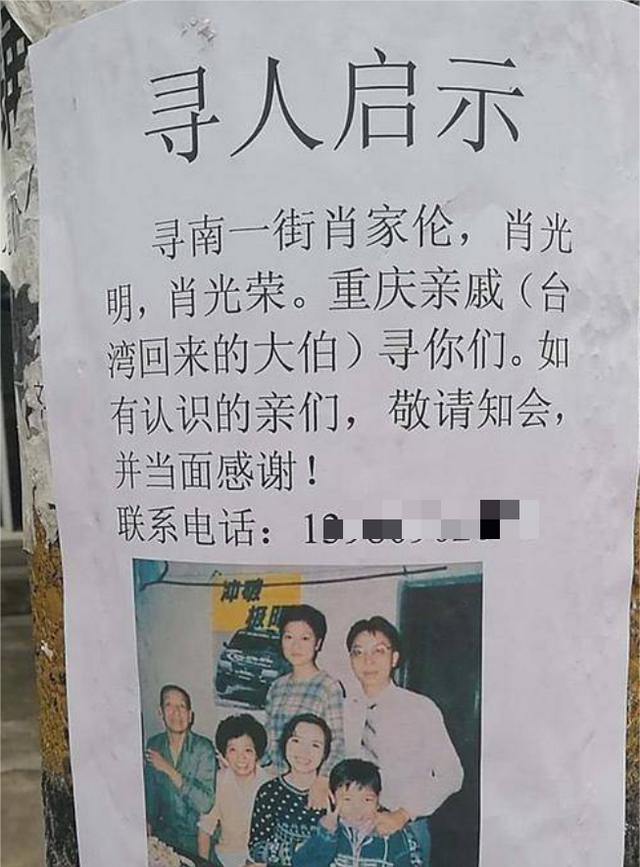 寻人启示
寻南一街肖家伦，肖光
明，肖光荣。重庆亲戚（台
湾回来的大伯）寻你们。如
有认识的亲们，敬请知会，
并当面感谢！
联系电话：
冲破